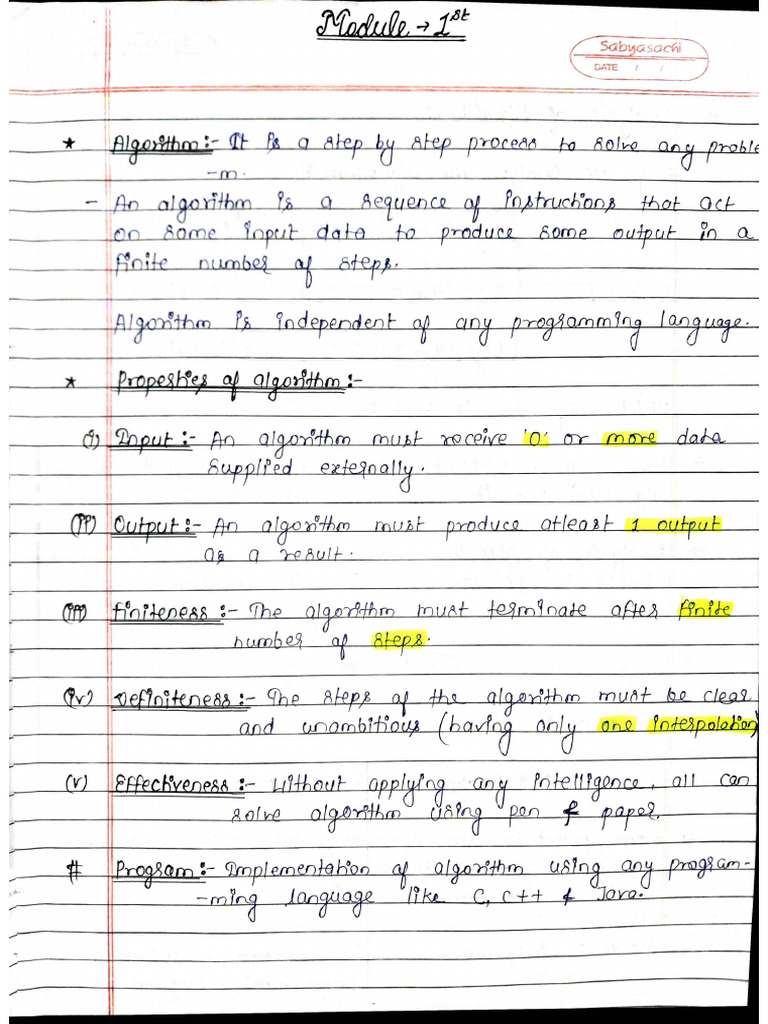 Module → 1st
Sabyasachi
DATE / /
* Algorithm :- It is a step by step process to solve any proble
-m.
- An algorithm is a sequence of instructions that act
on some input data to produce some output in a
finite number of steps.
Algorithm is independent of any programming language.
* Properties of algorithm :-
(i) Input :- An algorithm must receive '0' or more data
supplied externally.
(ii) Output :- An algorithm must produce atleast 1 output
as a result.
(iii) finiteness :- The algorithm must terminate after finite
number of steps.
(iv) Definiteness :- The steps of the algorithm must be clear
and unambitious (having only one interpolation)
(v) Effectiveness :- Without applying any intelligence, all can
solve algorithm using pen & paper.
# Program :- Implementation of algorithm using any program-
-ming language like C, C++ & Java.